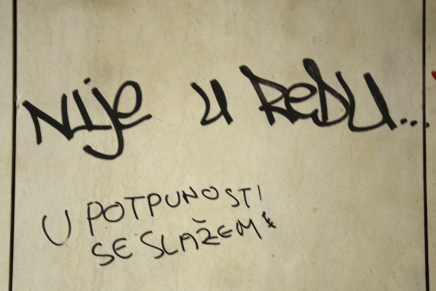 Nije u ReDu...
U POTPUNOSTI
SE SLAŽEM!